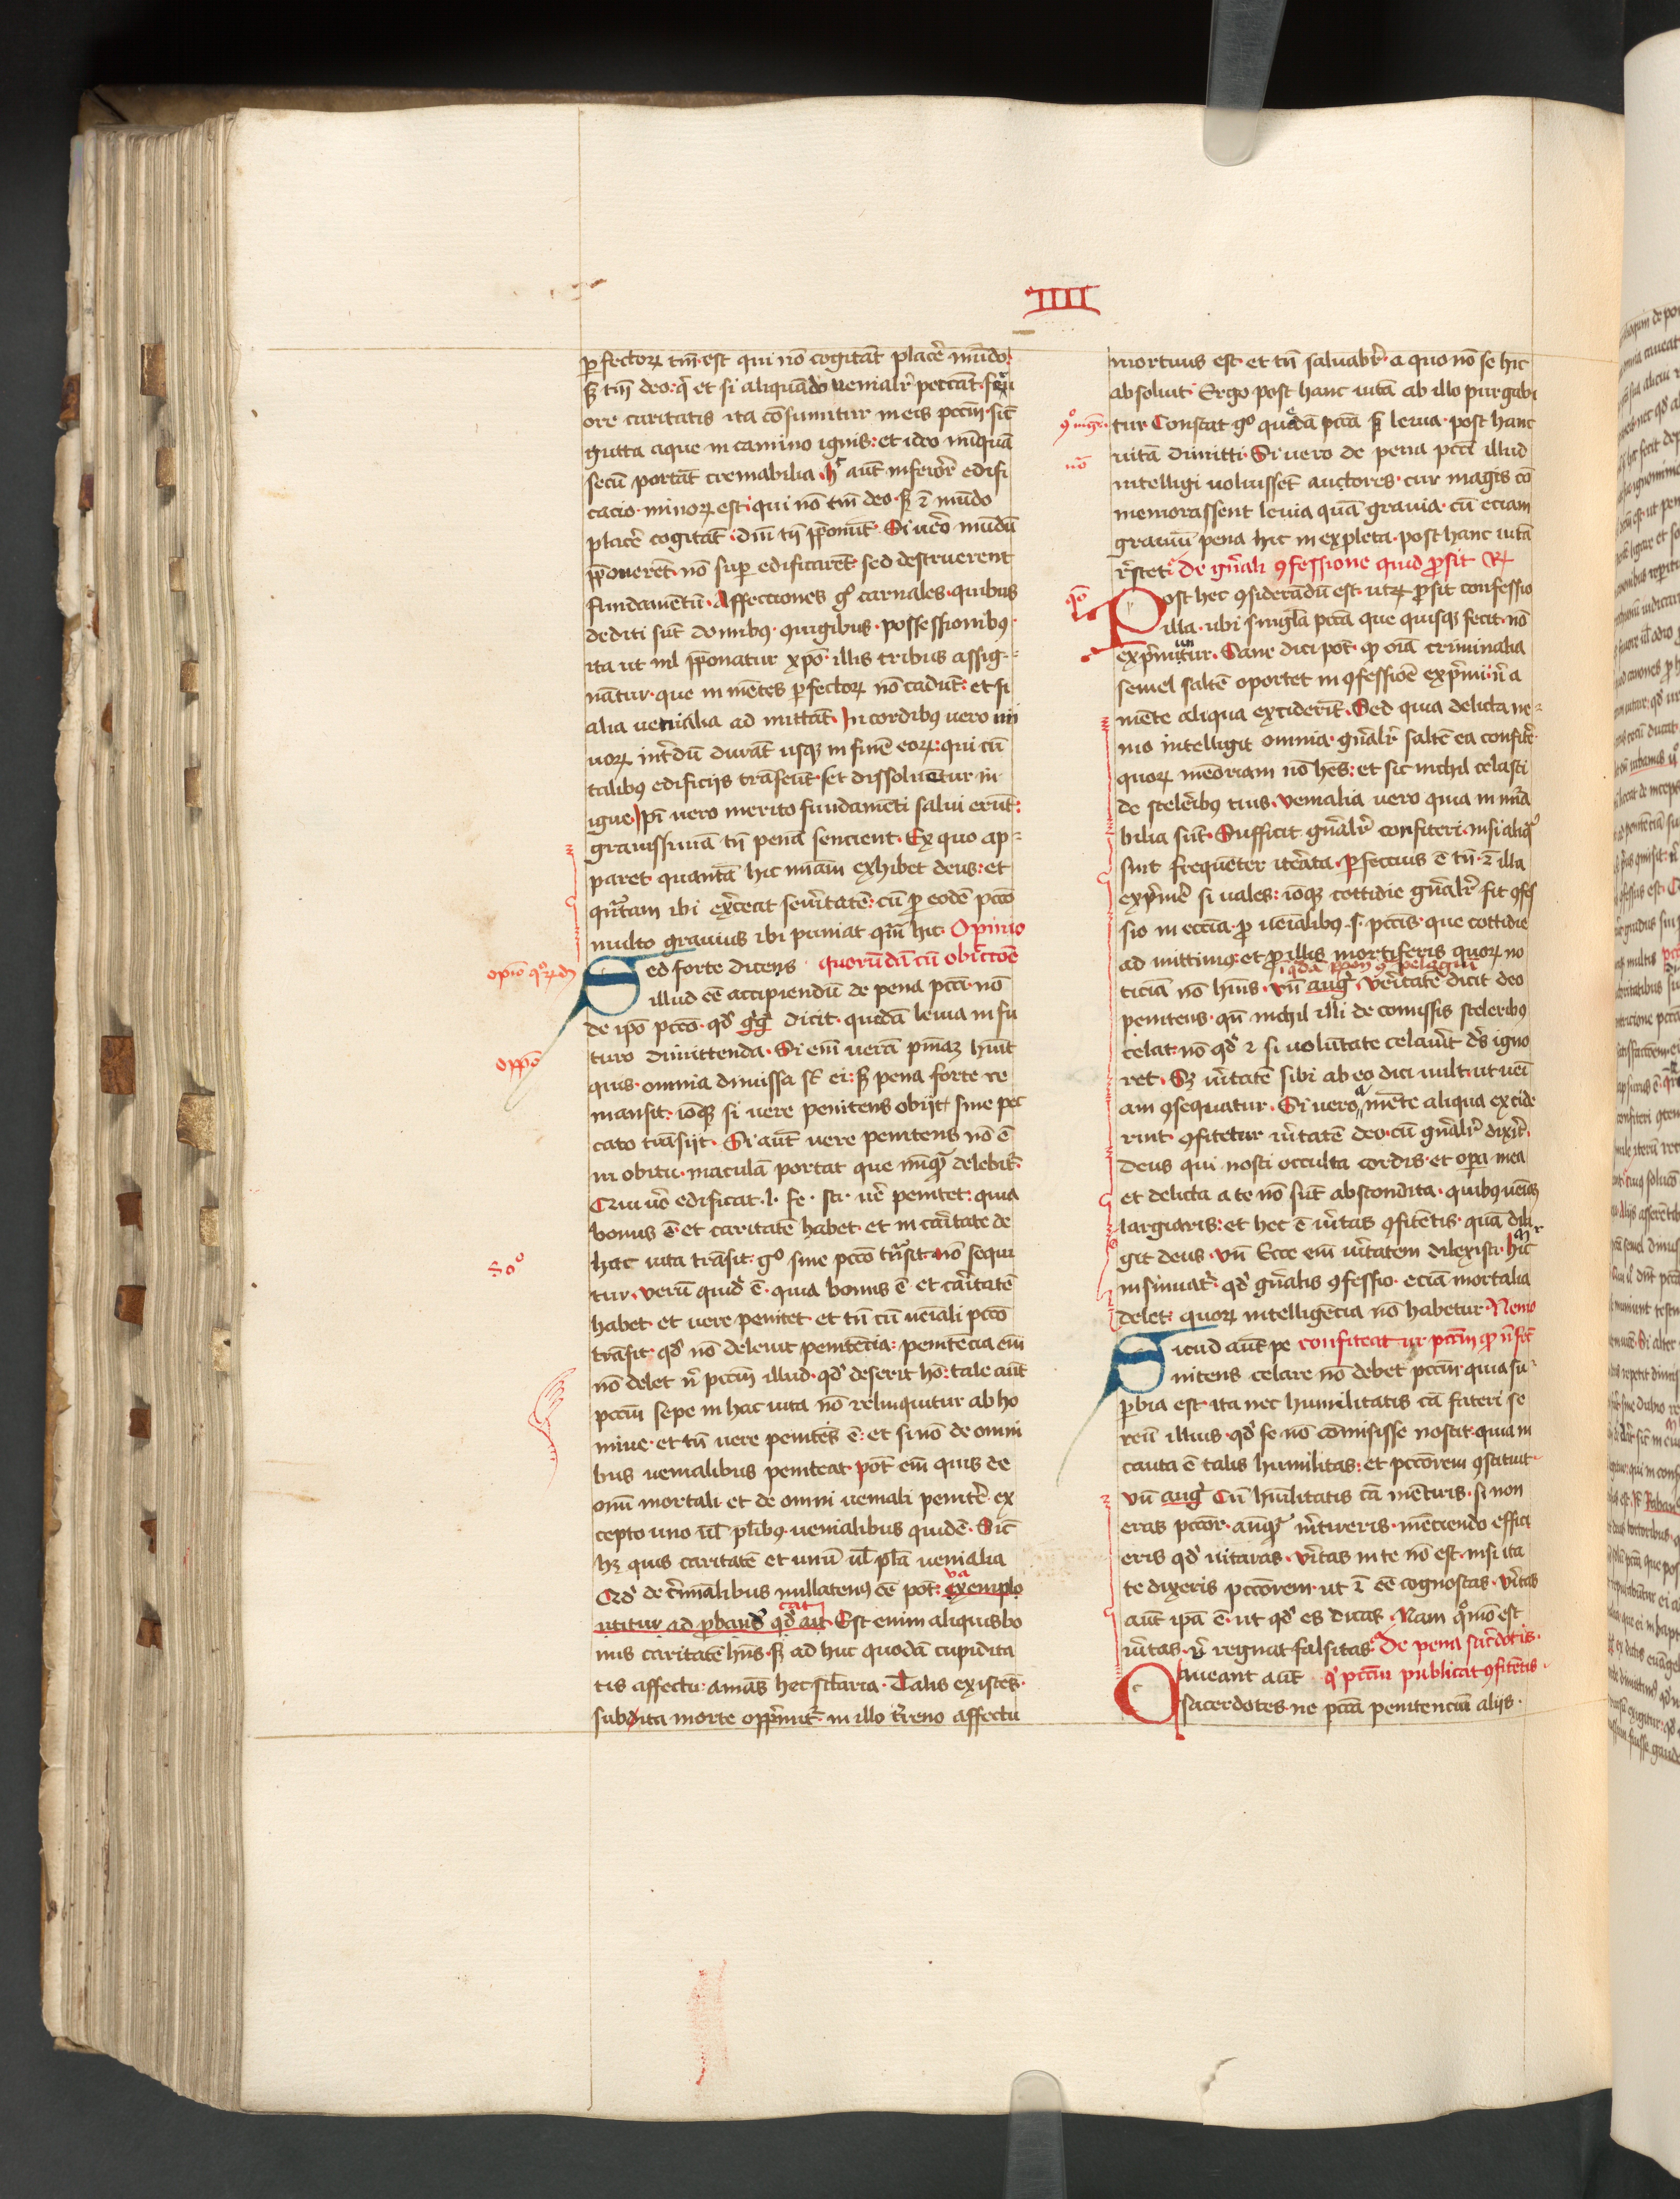 IIII
ꝑfectoꝝ tm̄ est qui nō cogitāt placē mūdo
sꝫ tm̄ deo: qͥ et si aliquādo uenialr̄ peccāt feru
ore caritatis ita cōsumitur in eis pccm̄ sic̄
gutta aque in camino ignis: et ideo nūquā
secū portāt cremabilia. hͦ aūt inferiōr edifi
cacio minoꝝ est qui nō tm̄ deo sꝫ ⁊ mūdo
placē cogitāt. dm̄ tn̄ p̄ponūt. Si uero mūdū
p̄ponerēt nō suꝑ edificarēt sed destruerent
fundamētū. Affecciones gͦ carnales quibus
dediti sūt domibꝰ ꝯiugibus possessionibꝰ
ita ut nil p̄ponatur xp̄o illis tribus assig-
nātur que in mētes ꝑfectoꝝ nō cadūt: et si
alia uenialia ad mittāt. In cordibꝰ uero mi
noꝝ int̄dū durāt usqꝫ in finē eoꝝ: qui cū
talibꝰ edificijs trāseūt set dissoluētur in
igne. Ip̄i uero merito fundamēti salui erūt:
grauissimā tn̄ penā sencient. Ex quo ap-
paret quantā hic mīam exhibet deus: et
qn̄tam ibi exerceat seuitatē: cū ꝓ eodē pcc̄o
multo grauius ibi puniat qm̄ hic Opinio
quorūdā cū obieccōe
opīo qͦꝝdā
Sed forte dicens
illud eē accipiendū de pena pcci nō
de ipō pcc̄o qd̄ gͥg dicit quedā leuia in fu
turo dimittenda. Si em̄ uerā pn̄iaꝫ hūit
oppō
quis omnia dimissa st̄ ei: sꝫ pena forte re
mansit: ioqꝫ si uere penitens obijt sine pec
cato trāsijt. Si aūt uere penitens nō ē
in obitu maculā portat que nūqͣ delebit̄.
Cui uē edificat. l. fe. sti. uē penitet: quia
bonus ē et caritatē habet et in caritate de
hac uita trāsit gͦ sine pcc̄o trāsit nō sequi
Soͦ
tur. uerū quid̄ ē quia bonus ē et caritatē
habet et uere penitet et tn̄ cū ueiali pcc̄o
trāsit qd̄ nō deleuit penitēcia: penitēcia em̄
nō delet n̄ pccm̄ illud qd̄ deserit hō: tale aūt
pccm̄ sepe in hac uita nō relinquitur ab ho
mine et tn̄ uere penites ē: et si nō de omni
bus uenialibus peniteat pōt em̄ quis de
om̄i mortali et de omni ueniali penitē ex
cepto uno ul̄ plibꝰ uenialibus quidē. Sic̄
hꝫ quis caritatē et unū ul̄ plā uenialia
Qd̄ de cͥminalibus nullatenꝰ eē pōt: exemplo
utitur ad ꝓband̄ qd̄ ait Est enim aliquis bo
nus caritatē hn̄s sꝫ ad huc quodā cupidita
tis affectu amās hec sclaria. Talis existēs
subdita morte opp̄mit̄ in illo t̄reno affectu
mortuus est et tn̄ saluabr̄ a quo nō se hic
absoluit. Ergo post hanc uitā ab illo purgabi
ꝯͦ mgr̄i
tur Constat gͦ quedā pccā sꝫ leuia post hanc
nō
uitā dimitti. Si uero de pena pcci illud
intelligi uoluissēt auctores cur magis cō
memorassent leuia quā grauia cū eciam
grauiū pena hic in expleta post hanc uitā
r̄stet: De gn̄ali ꝯfessione quid ꝓsit Rͨ
qō
Post hec ꝯsiderādū est utꝝ ꝓsit confessio
illa ubi singla pccā que quisqꝫ fecit nō
exp̄mūtur. Sane dici pōt qꝫ oīa criminalia
semel saltē oportet in ꝯfessiōe exp̄mi: n̄ a
mēte aliqua exciderīt. Sed quia delicta ne-
mo intelligit omnia gn̄alr̄ saltē ea confitē
quoꝝ memoriam nō hēs: et sic nichil celasti
de sceleribꝰ tuis. venialia uero quia in nūa
bilia sūt. Sufficit gn̄alr̄ confiteri nisi aliqͣ
sint frequēter iterata. ꝑfectius ē tn̄ ⁊ illa
exp̄mē si uales: ioqꝫ cottidie gn̄alr̄ fit ꝯfes
sio in eccīa ꝓ ueialibꝰ. s. pccis que cottidie
ad mittimꝰ: et ꝓ illis mortiferis quoꝝ no
ticiā nō hm̄s. vn̄ auḡ. veritatē dicit deo
penitens qn̄ nichil illi de comissis sceleribꝰ
celat: nō qd̄ ⁊ si uolūtate celauīt ds̄ igno
ret. Sꝫ uītatē sibi ab eo dici uult: ut uēi
am ꝯsequatur. Si uero a mēte aliqua excide
rint ꝯfitetur uītatē deo cū gn̄alr̄ dixīt.
Deus qui nosti occulta cordis et opa mea
et delicta a te nō sūt abscondita quibꝰ ueiaꝫ
largiaris: et hec ē uītas ꝯfitētis quā dili
git deus. vn̄ Ecce em̄ uītatem dilexisti. hic
insinuat̄ qd̄ gn̄alis ꝯfessio eciā mortalia
delet quoꝝ intelligēcia nō habetur. Nemo
confiteat ur pccm̄ qꝫ n̄ fēc̄
Sicud aūt pe
nitens celare nō debet pccm̄ quia su-
ꝑbia est: ita nec humilitatis cā fateri se
reū illius qd̄ se nō cōmisisse noscit quia in
cauta ē talis humilitas: et pccōrem ꝯstituit.
vn̄ auḡ Cū hūilitatis cā mētiris. si non
eras pccōr anqͣ mētireris mēciendo effici
eris qd̄ uitaras. vītas in te nō est nisi ita
te dixeris pccōrem ut ⁊ eē cognoscas. vītas
aūt ipa ē ut qd̄ es dicas. Nam qͦmō est
uītas uͥ regnat falsitas. De pena sacēdotis
qͥ pccm̄ publicat ꝯfitētis
Caueant aūt
sacerdotes ne pccā penitenciū alijs